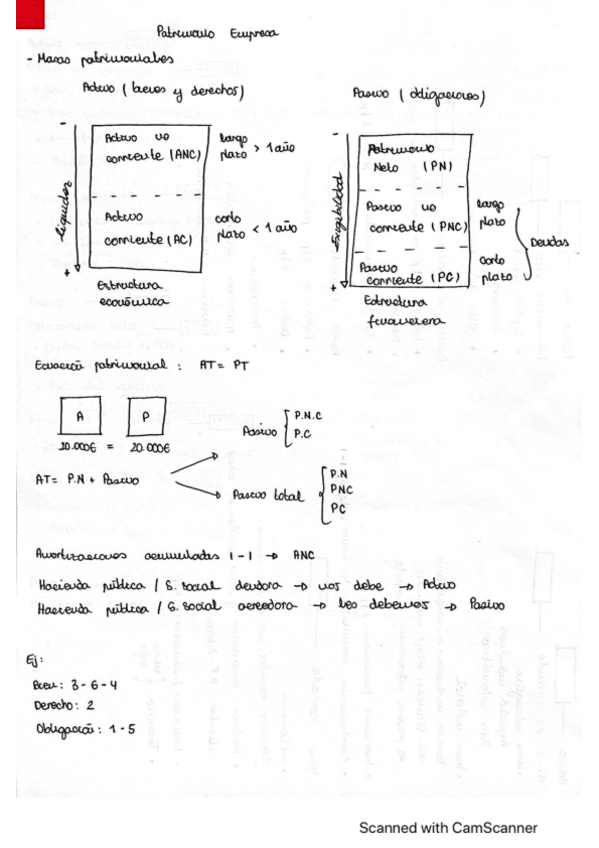 Patrimonio Empresa
- Masas patrimoniales
Activo (bienes y derechos)
Pasivo (obligaciones)
-
Liquidez
+
Activo no
corriente (ANC)
largo
plazo > 1 año
Activo
corriente (AC)
corto
plazo < 1 año
Estructura
económica
-
Exigibilidad
+
Patrimonio
Neto (PN)
Pasivo no
corriente (PNC)
largo
plazo
Pasivo
corriente (PC)
corto
plazo
Deudas
Estructura
financiera
Ecuación patrimonial : AT = PT
A
P
20.000€ = 20.000€
Pasivo
P.N.C
P.C
AT = P.N + Pasivo
Pasivo total
P.N
PNC
PC
Amortizaciones acumuladas (-) → ANC
Hacienda pública / S. social deudora → nos debe → Activo
Hacienda pública / S. social acreedora → leo debemos → Pasivo
Ej:
Bien: 3 - 6 - 4
Derecho: 2
Obligación: 1 - 5
Scanned with CamScanner